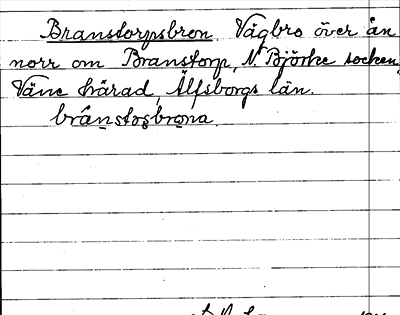 Branstorpsbron. Vägbro över ån
norr om Branstorp, N. Björke socken,
Väne härad, Älfsborgs län.
brånstosbrona.